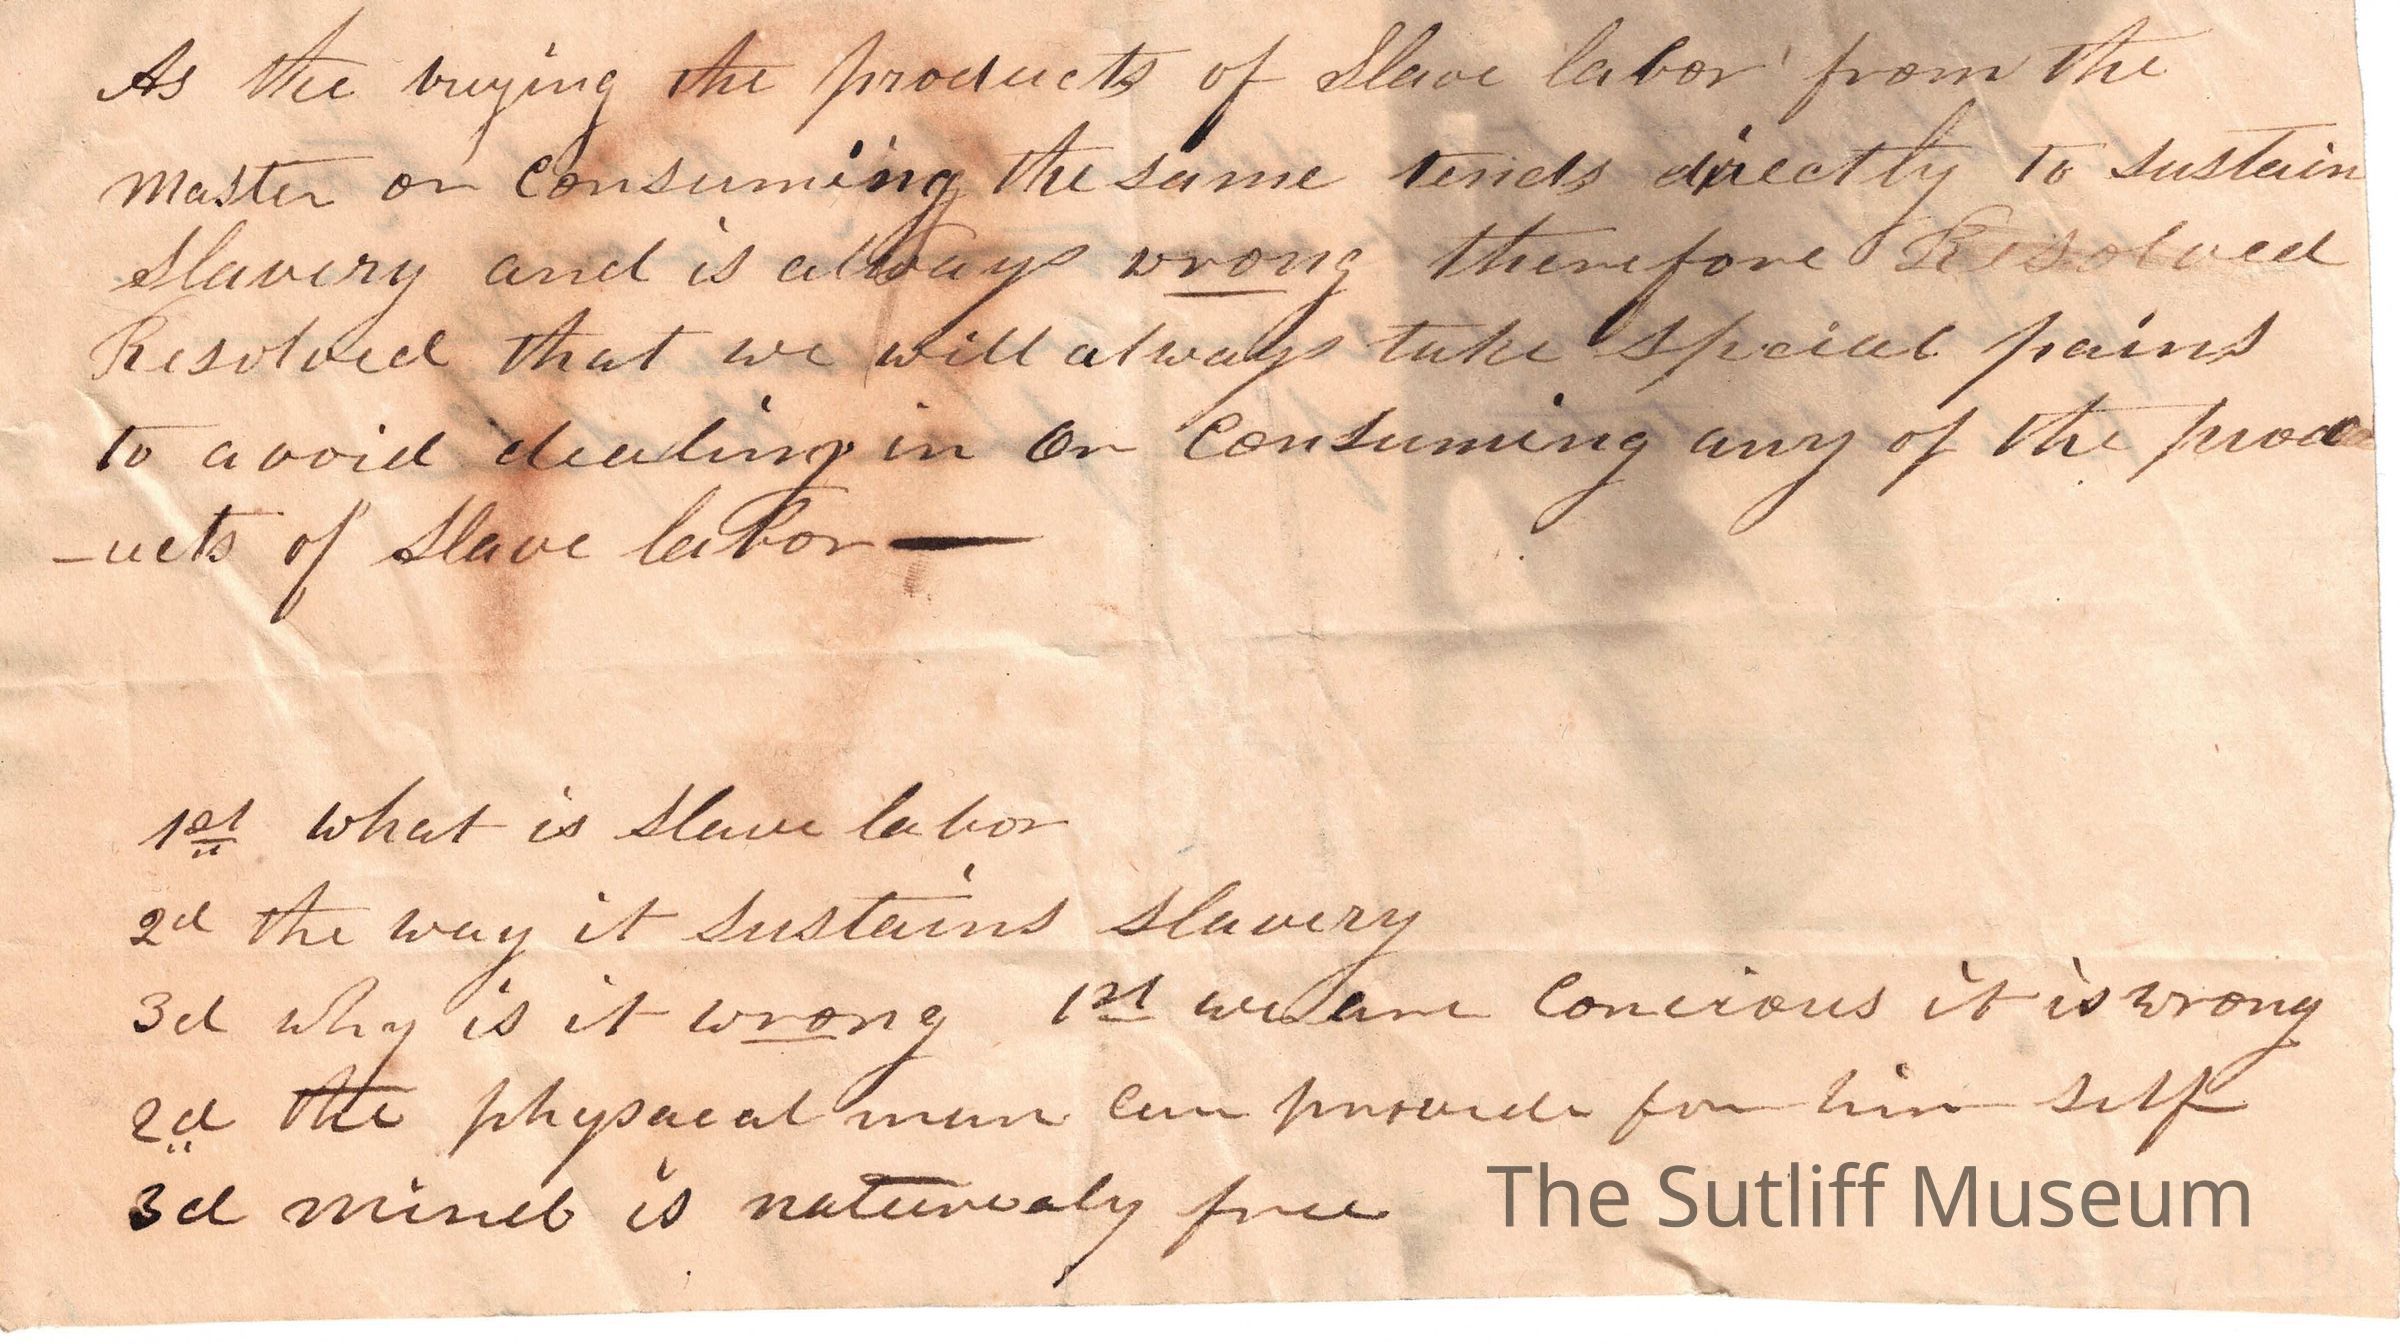 As the buying the products of Slave labor from the
Master or Consuming the same tends directly to sustain
Slavery and is always wrong therefore Resolved
Resolved that we will always take special pains
to avoid dealing in or Consuming any of the prod
-ucts of Slave labor—
1st what is Slave labor
2d the way it sustains slavery
3d why is it wrong 1st we are Concious it is wrong
2d the physacal man can provide for him self
3d mind is naturealy free
The Sutliff Museum